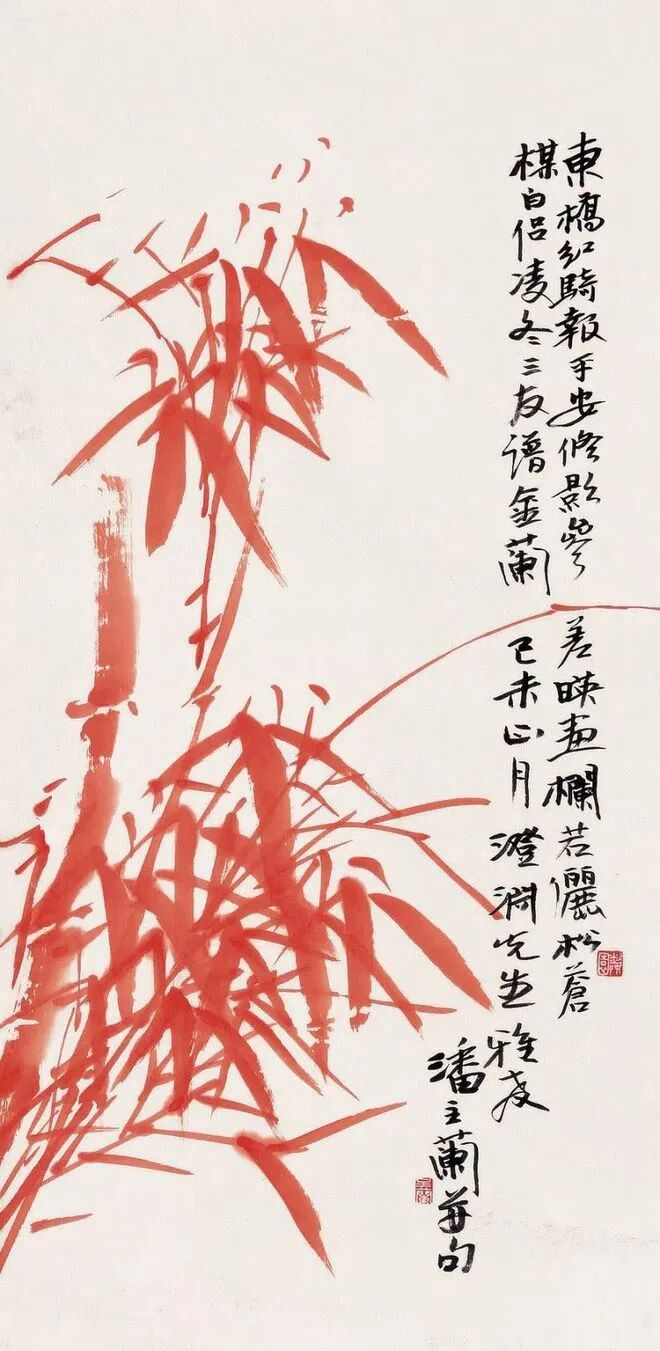 東橋紅騎報平安修影參差映畫欄若儷松蒼
楳白侶凌冬三友譜金蘭 己未正月 澄淵先生雅教
潘主蘭並句